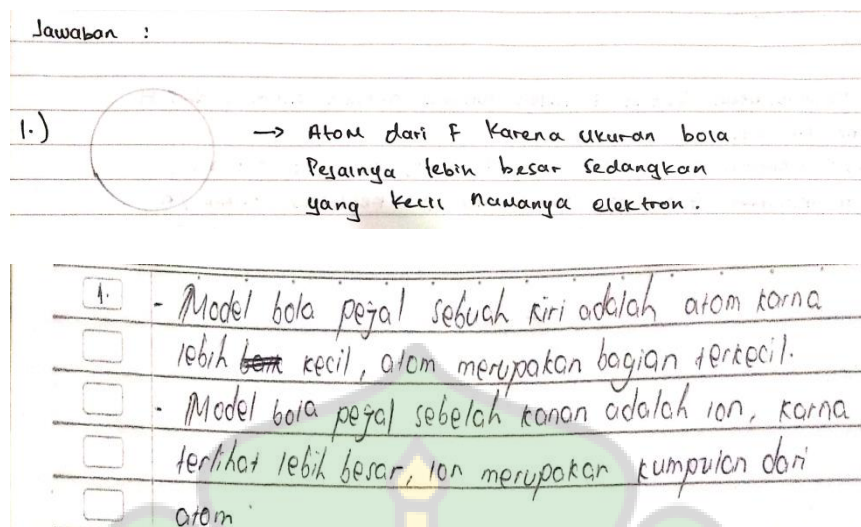 Jawaban :
1.) → Atom dari F Karena ukuran bola
Pejalnya lebih besar sedangkan
yang kecil namanya elektron.
1. - Model bola pejal sebuah kiri adalah atom karna
lebih kecil, atom merupakan bagian terkecil.
- Model bola pejal sebelah kanan adalah ion, karna
terlihat lebih besar, ion merupakan kumpulan dari
atom